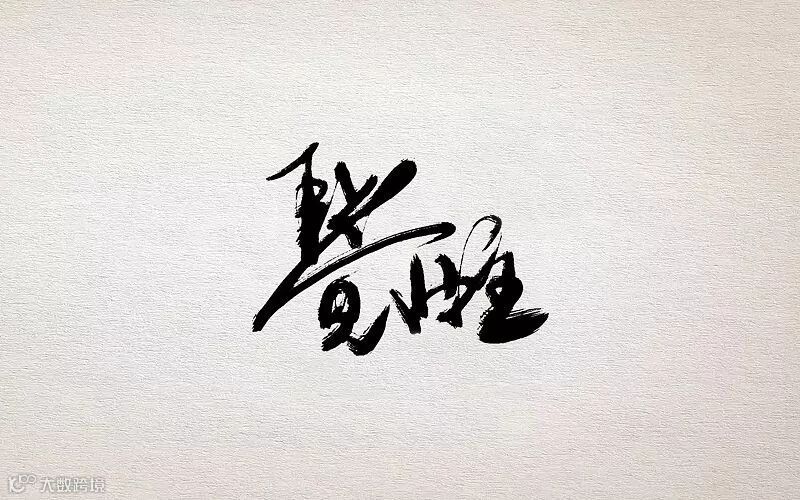 覺醒
大数跨境